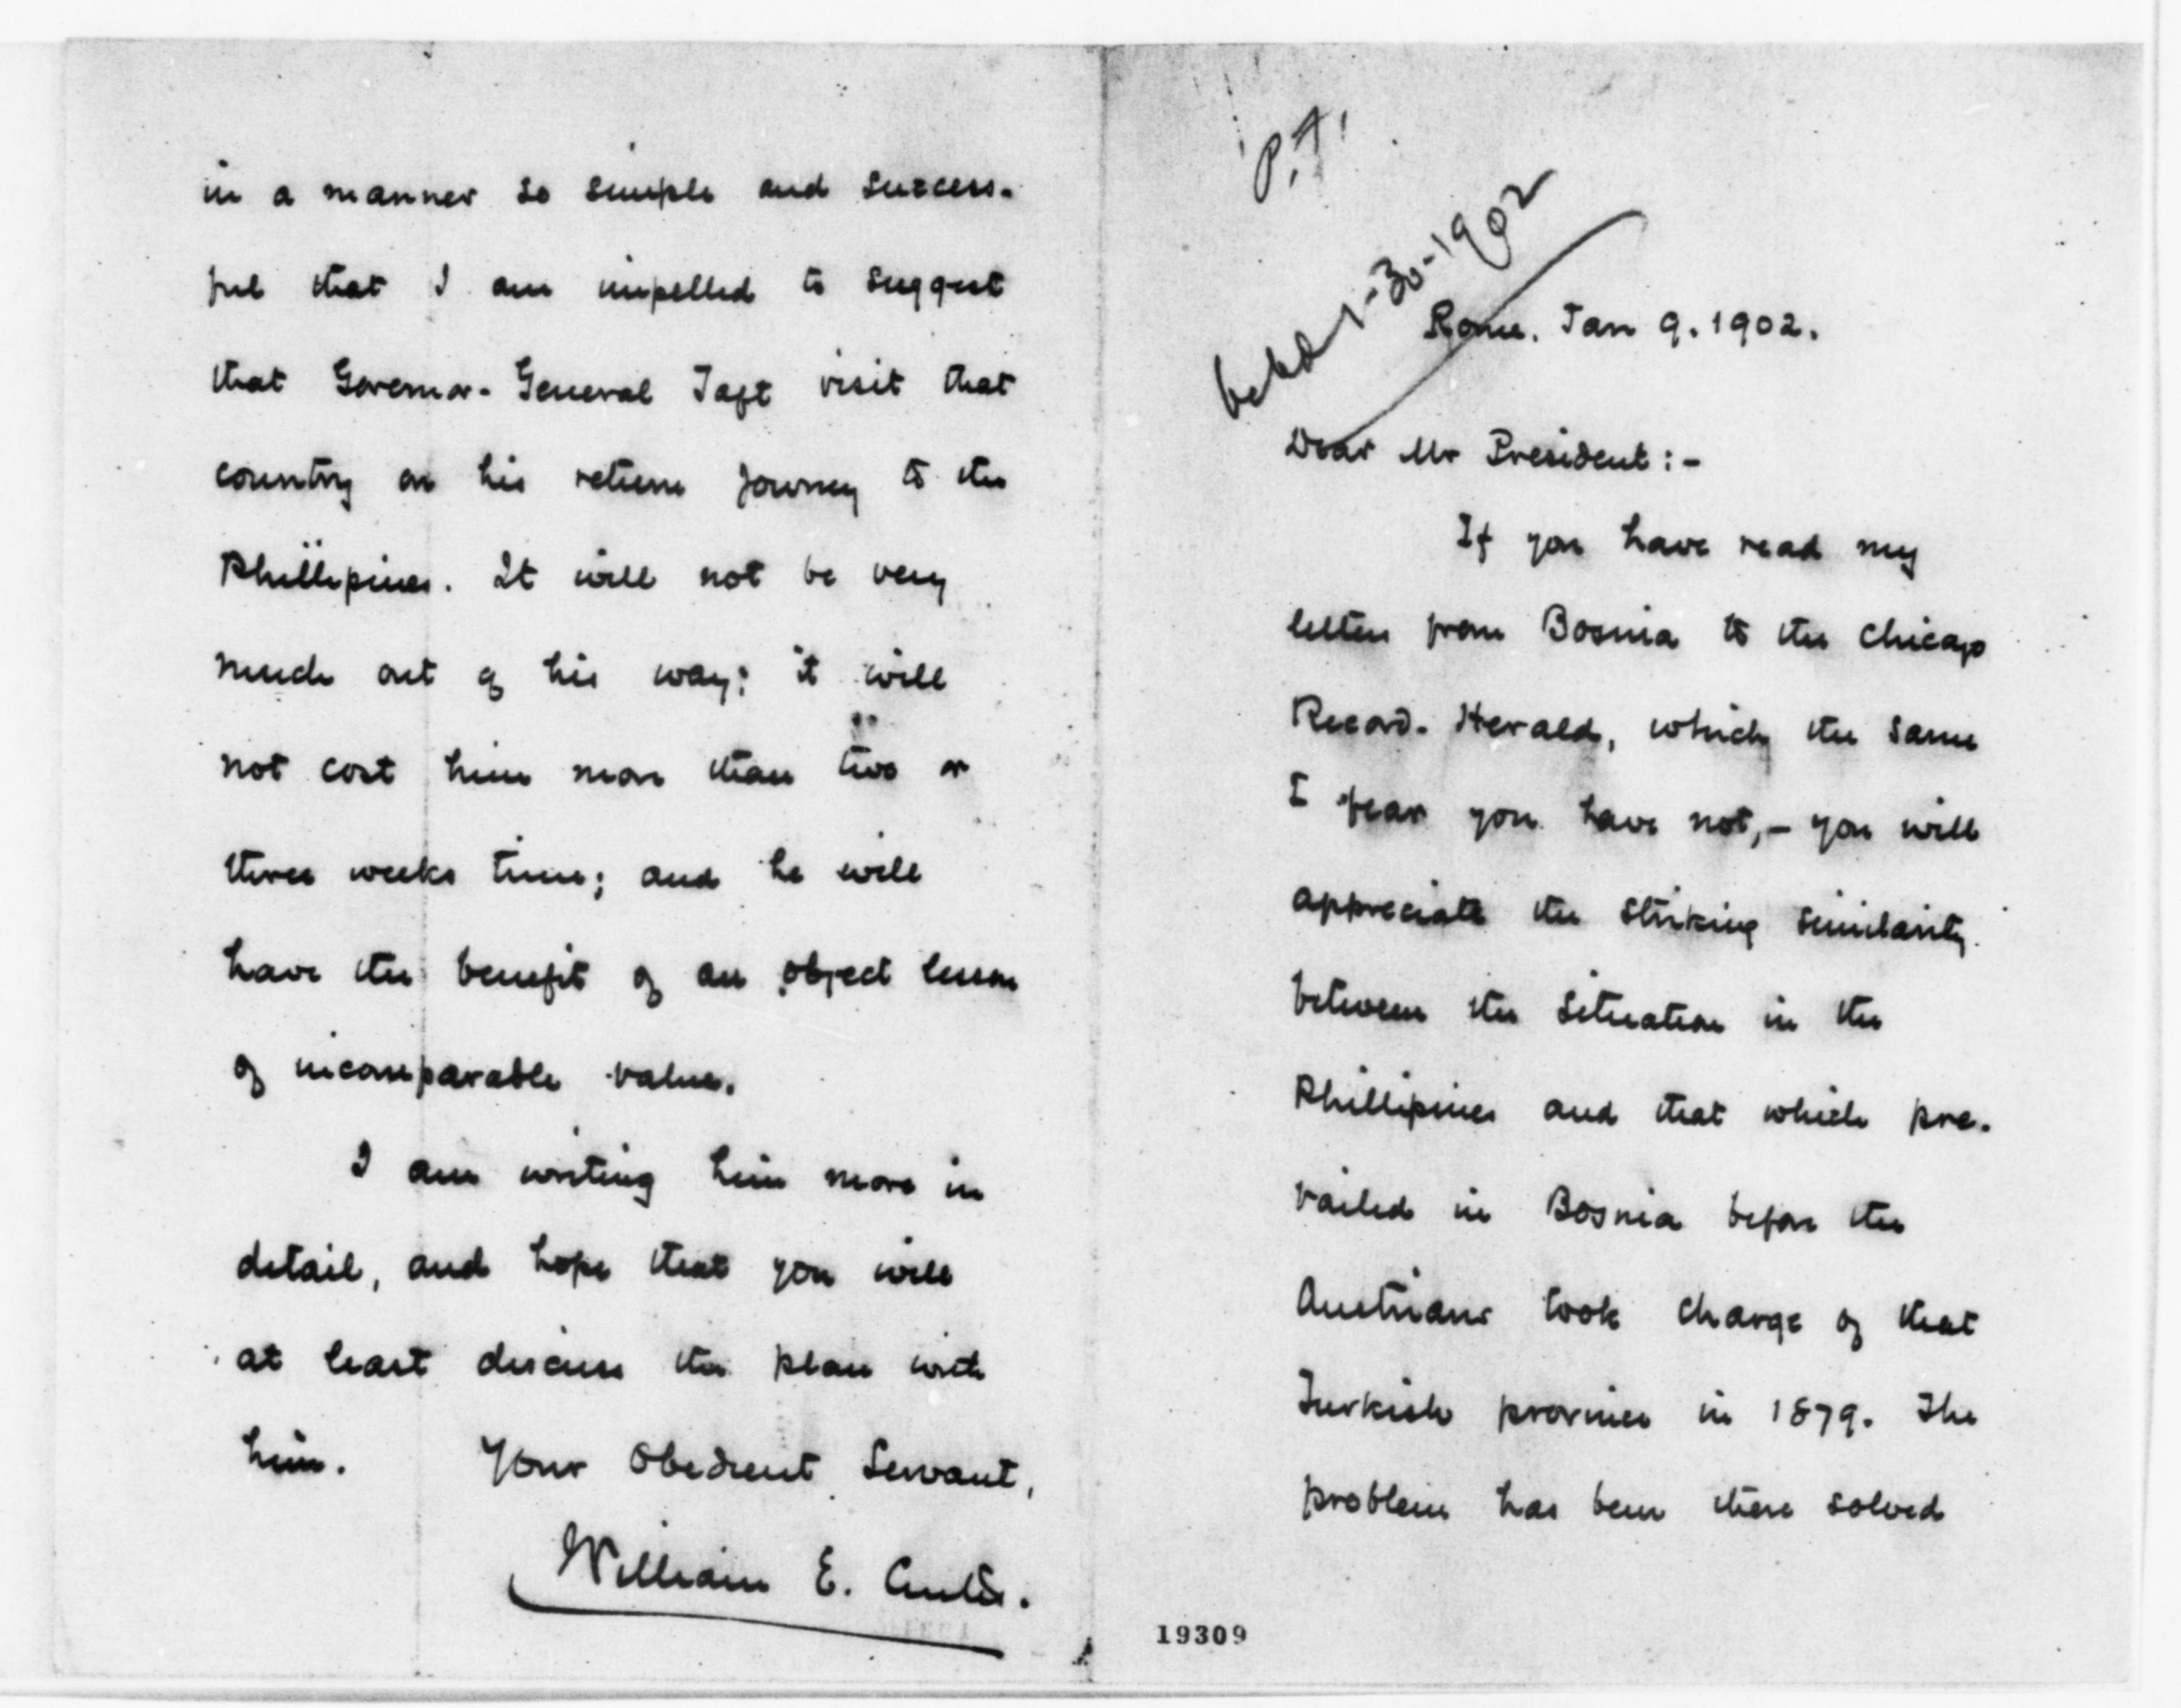 P.F.
1-30-1902
Rome. Jan 9. 1902.
Dear Mr President:-
If you have read my
letters from Bosnia to the Chicago
Record-Herald, which the same
I fear you have not,- you will
appreciate the striking similarity
between the situation in the
Phillipines and that which pre-
vailed in Bosnia before the
Austrians took charge of that
Turkish province in 1879. The
problem has been there solved
19309
in a manner so simple and success-
ful that I am impelled to suggest
that Governor-General Taft visit that
country on his return journey to the
Phillipines. It will not be very
much out of his way; it will
not cost him more than two or
three weeks time; and he will
have the benefit of an object lesson
of incomparable value.
I am writing him more in
detail, and hope that you will
at least discuss the plan with
him. Your Obedient Servant,
William E. Curtis.